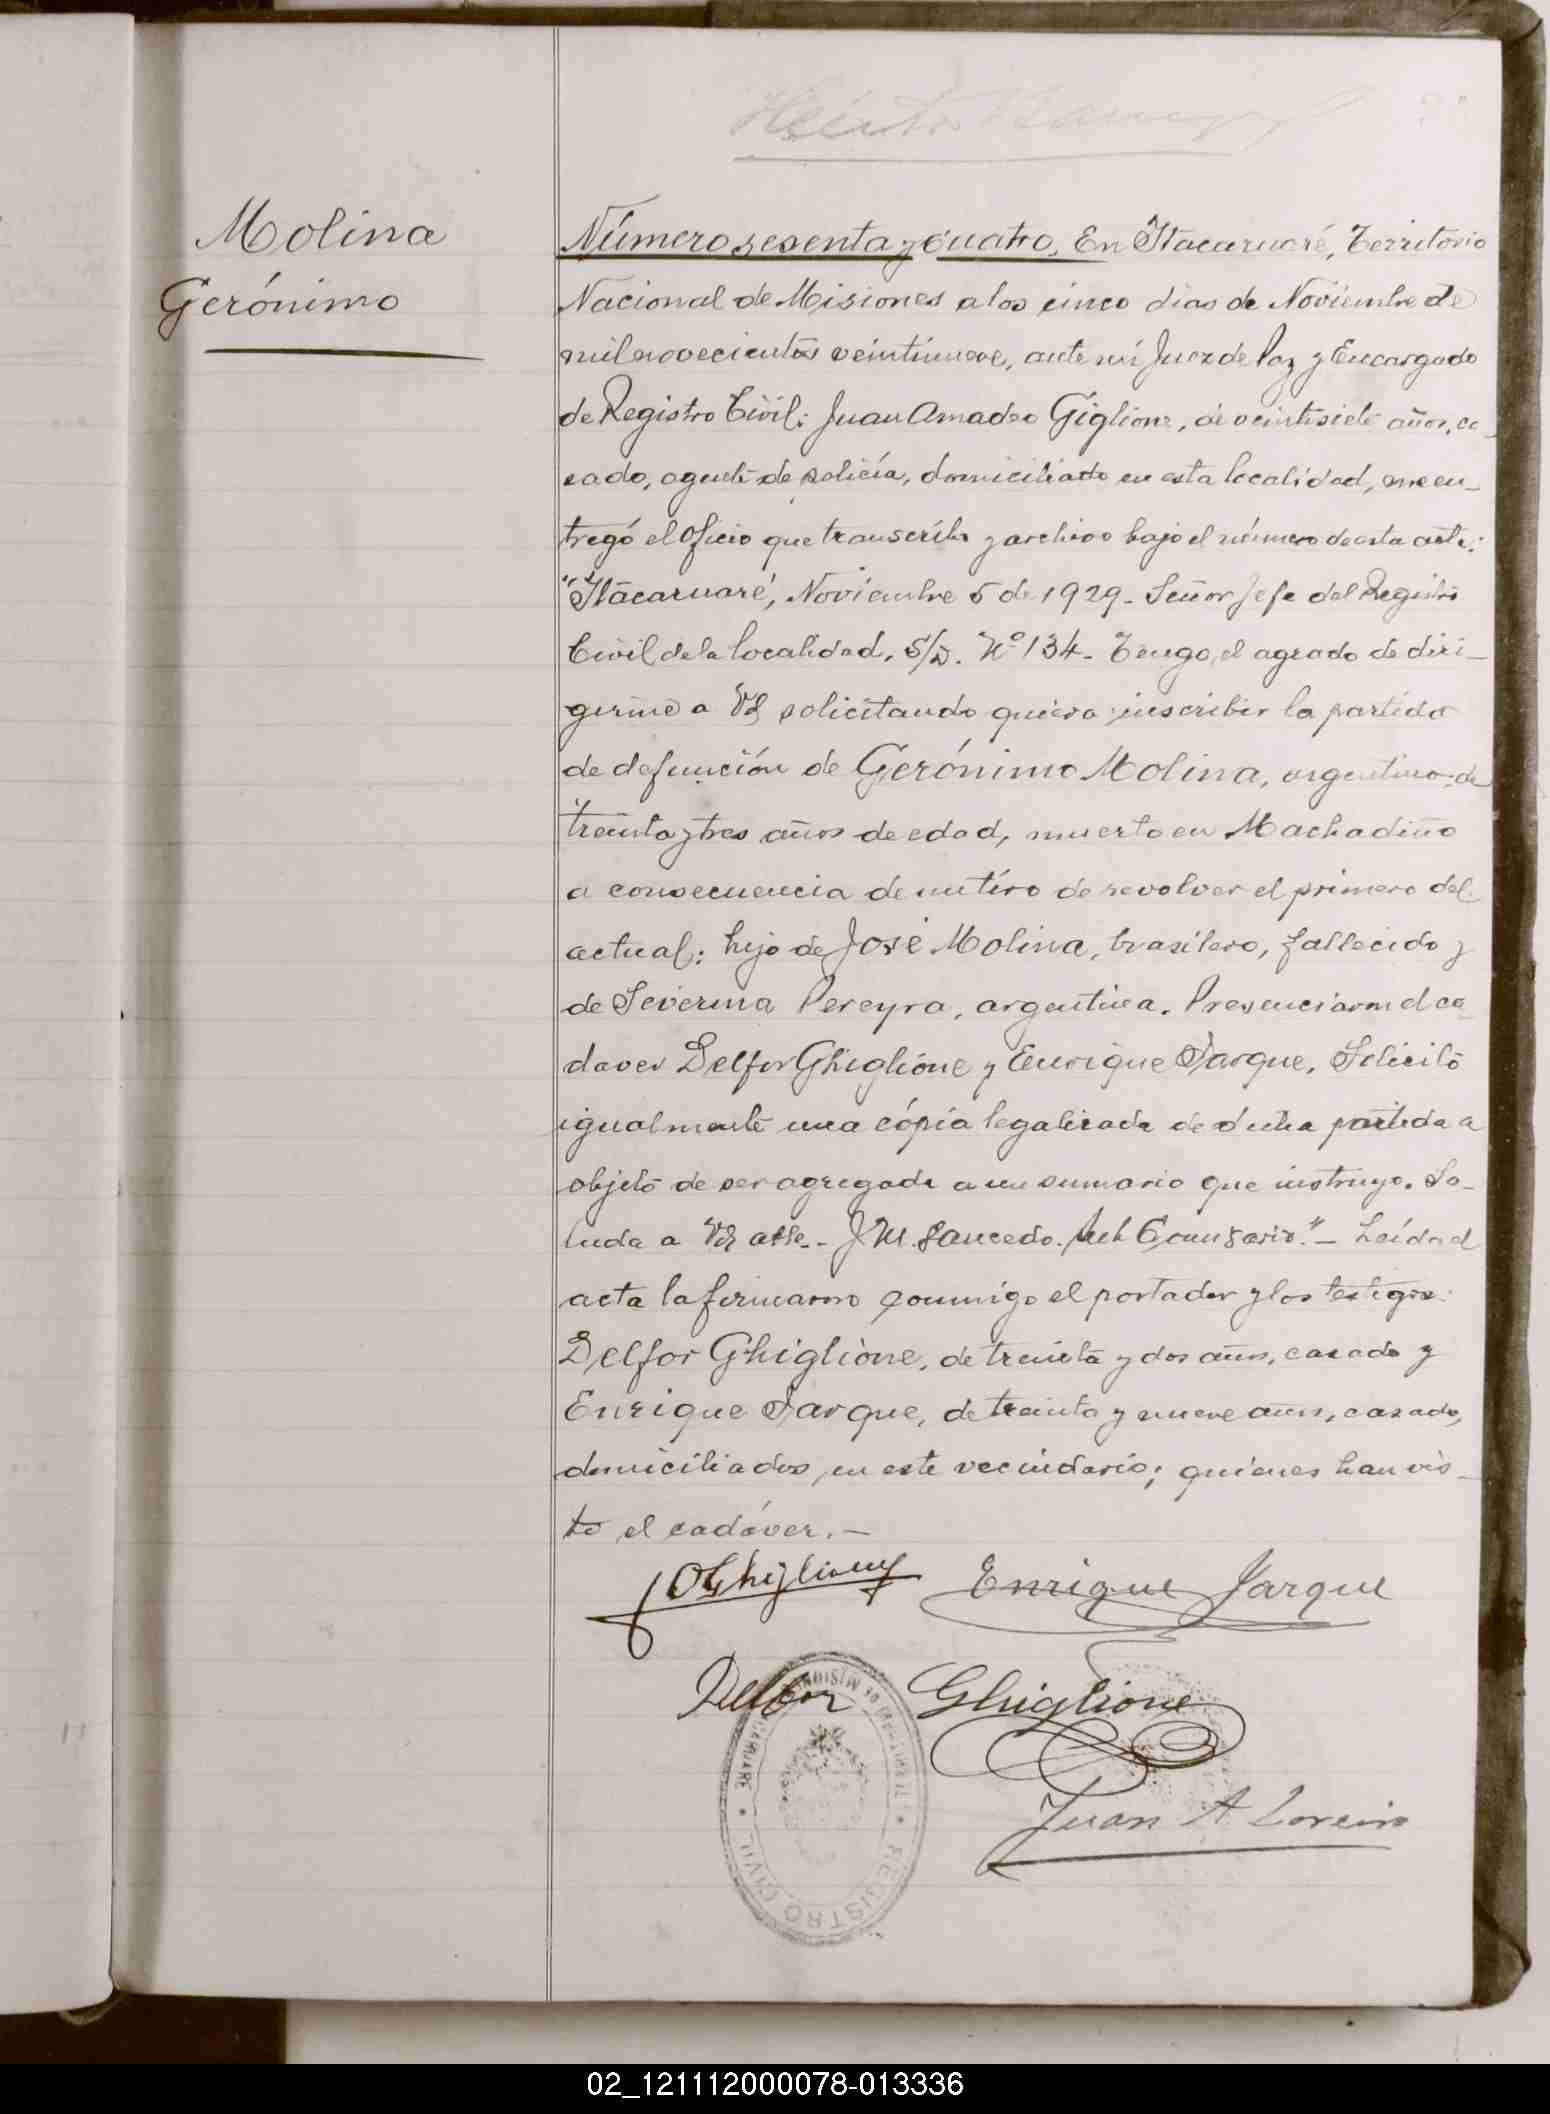 Molina
Gerónimo
Número sesenta y cuatro. En Itacaruaré, Territorio
Nacional de Misiones a los cinco dias de Noviembre de
mil novecientos veintinueve, ante mi Juez de Paz y Encargado
de Registro Civil: Juan Amadeo Giglione, de veintisiete años, ca-
sado, agente de policía, domiciliado en esta localidad, me en-
tregó el oficio que transcribo y archivo bajo el número de esta acta:
"Itacaruaré, Noviembre 5 de 1929. Señor Jefe del Registro
Civil de la localidad. S/D. Nº 134. Tengo el agrado de diri-
girme a Vd solicitando quiera inscribir la partida
de defunción de Gerónimo Molina, argentino, de
treinta y tres años de edad, muerto en Machadiño
a consecuencia de un tiro de revolver el primero del
actual: hijo de José Molina, brasilero, fallecido y
de Severina Pereyra, argentina. Presenciaron el ca-
daver Delfor Ghiglione y Enrique Jarque. Solicito
igualmente una cópia legalizada de dicha partida a
objeto de ser agregada a un sumario que instruyo. Sa-
luda a Vd atte.- J M. Saucedo. Sub Comisario."- Leída el
acta la firmaron conmigo el portador y los testigos:
Delfor Ghiglione, de treinta y dos años, casado y
Enrique Jarque, de treinta y nueve años, casado,
domiciliados en este vecindario; quienes han vis-
to el cadáver.-
Enrique Jarque
Delfor Ghiglione
Juan A Loreiro
REGISTRO CIVIL
02_121112000078-013336